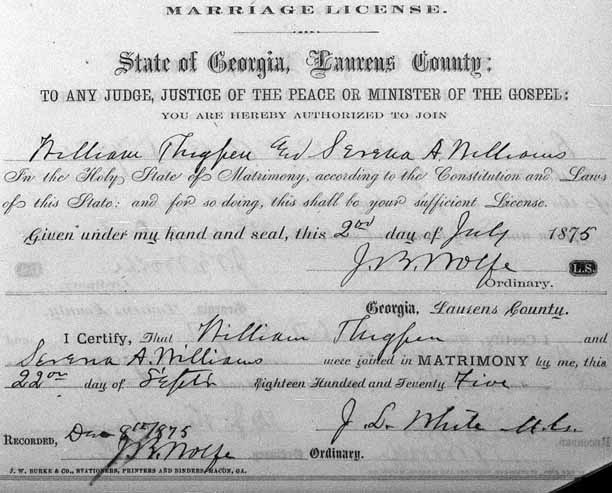 MARRIAGE LICENSE.
State of Georgia, Laurens County:
TO ANY JUDGE, JUSTICE OF THE PEACE OR MINISTER OF THE GOSPEL:
YOU ARE HEREBY AUTHORIZED TO JOIN
William Thigpen and Serena A. Williams
In the Holy State of Matrimony, according to the Constitution and Laws
of this State: and for so doing, this shall be your sufficient License.
Given under my hand and seal, this 2nd day of July 1875
J. B. Wolfe L.S.
Ordinary.
Georgia, Laurens County.
I Certify, That William Thigpen and
Serena A. Williams were joined in MATRIMONY by me, this
22 day of Septr Eighteen Hundred and Seventy Five
J. L. White
RECORDED, Dec 9th 1875
J. B. Wolfe Ordinary.
J. W. BURKE & CO., STATIONERS, PRINTERS AND BINDERS, MACON, GA.